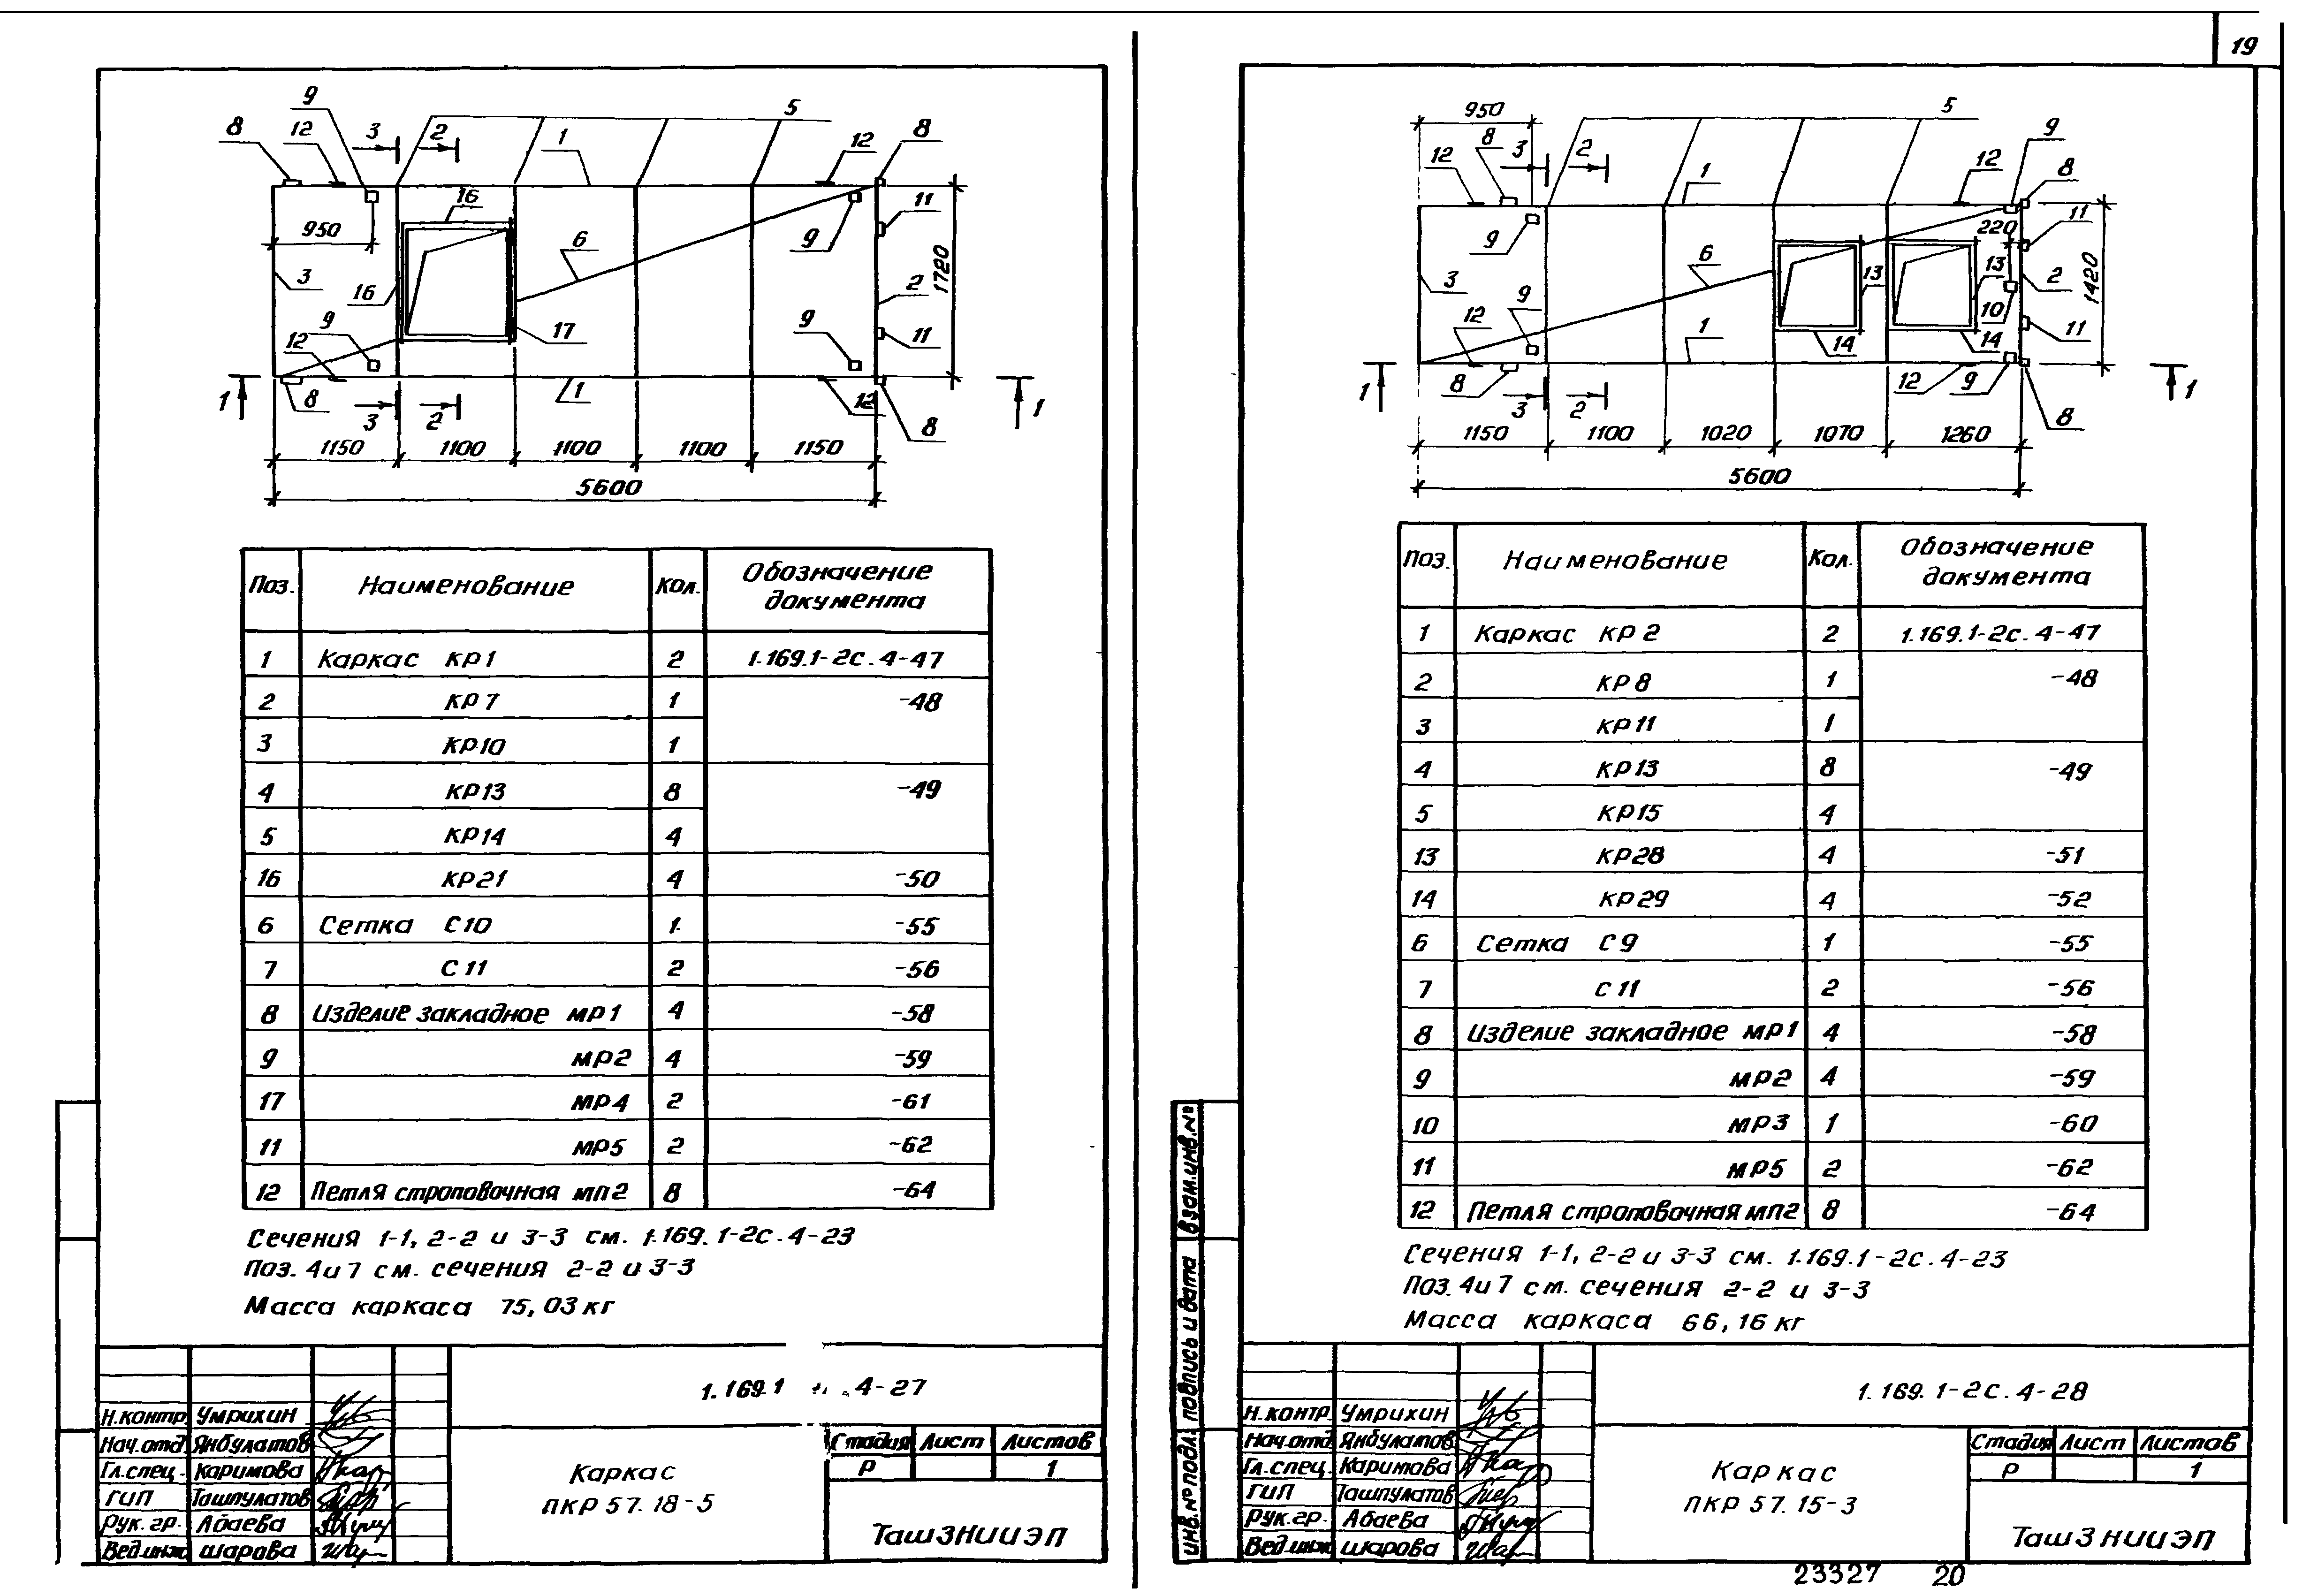 19
9
8 12 3 2 1 5 12 8
16 11
950
9
6
3 16 2
1720
9 17 9 11
12
1 8 3 2 1 12 8 1
1150 1100 1100 1100 1150
5600
Поз. Наименование Кол. Обозначение документа
1 Каркас КР1 2 1.169.1-2с.4-47
2 КР7 1 -48
3 КР10 1
4 КР13 8 -49
5 КР14 4
16 КР21 4 -50
6 Сетка С10 1 -55
7 С11 2 -56
8 Изделие закладное МР1 4 -58
9 МР2 4 -59
17 МР4 2 -61
11 МР5 2 -62
12 Петля строповочная МП2 8 -64
Сечения 1-1, 2-2 и 3-3 см. 1.169.1-2с.4-23
Поз. 4и7 см. сечения 2-2 и 3-3
Масса каркаса 75,03 кг
1.169.1 .4-27
Н.контр. Умрихин
Нач.отд. Янбулатов
Гл.спец. Каримова
ГИП Ташпулатов
Рук.гр. Абаева
Вед.инж. Шарова
Каркас
ПКР 57.18-5
Стадия Лист Листов
Р 1
ТашЗНИИЭП
950 5
12 8 3 2 1 12 9 8
9 220 11
3 6 13 13 2
1420
9 12 1 10 11
14 14
1 8 3 2 12 9 8 1
1150 1100 1020 1070 1260
5600
Поз. Наименование Кол. Обозначение документа
1 Каркас КР2 2 1.169.1-2с.4-47
2 КР8 1 -48
3 КР11 1
4 КР13 8 -49
5 КР15 4
13 КР28 4 -51
14 КР29 4 -52
6 Сетка С9 1 -55
7 С11 2 -56
8 Изделие закладное МР1 4 -58
9 МР2 4 -59
10 МР3 1 -60
11 МР5 2 -62
12 Петля строповочная МП2 8 -64
Сечения 1-1, 2-2 и 3-3 см. 1.169.1-2с.4-23
Поз. 4и7 см. сечения 2-2 и 3-3
Масса каркаса 66,16 кг
Инв.№подл. Подпись и дата Взам.инв.№
1.169.1-2с.4-28
Н.контр. Умрихин
Нач.отд. Янбулатов
Гл.спец. Каримова
ГИП Ташпулатов
Рук.гр. Абаева
Вед.инж. Шарова
Каркас
ПКР 57.15-3
Стадия Лист Листов
Р 1
ТашЗНИИЭП
23327 20